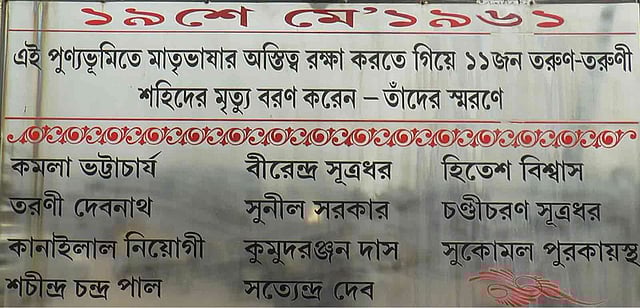 ১৯শে মে'১৯৬১
এই পুণ্যভূমিতে মাতৃভাষার অস্তিত্ব রক্ষা করতে গিয়ে ১১জন তরুণ-তরুণী
শহিদের মৃত্যু বরণ করেন – তাঁদের স্মরণে
কমলা ভট্টাচার্য বীরেন্দ্র সূত্রধর হিতেশ বিশ্বাস
তরণী দেবনাথ সুনীল সরকার চণ্ডীচরণ সূত্রধর
কানাইলাল নিয়োগী কুমুদরঞ্জন দাস সুকোমল পুরকায়স্থ
শচীন্দ্র চন্দ্র পাল সত্যেন্দ্র দেব